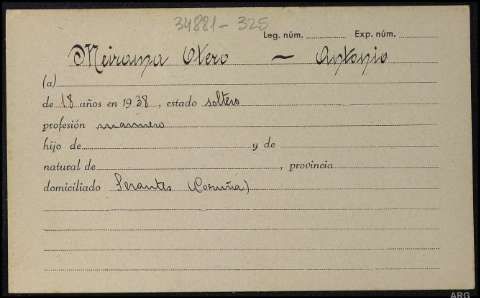 34881-325
Leg. núm. Exp. núm.
Meirama Otero — Antonio
(a)
de 18 años en 1938, estado soltero
profesión marinero
hijo de y de
natural de , provincia
domiciliado Serantes (Coruña)
ARG